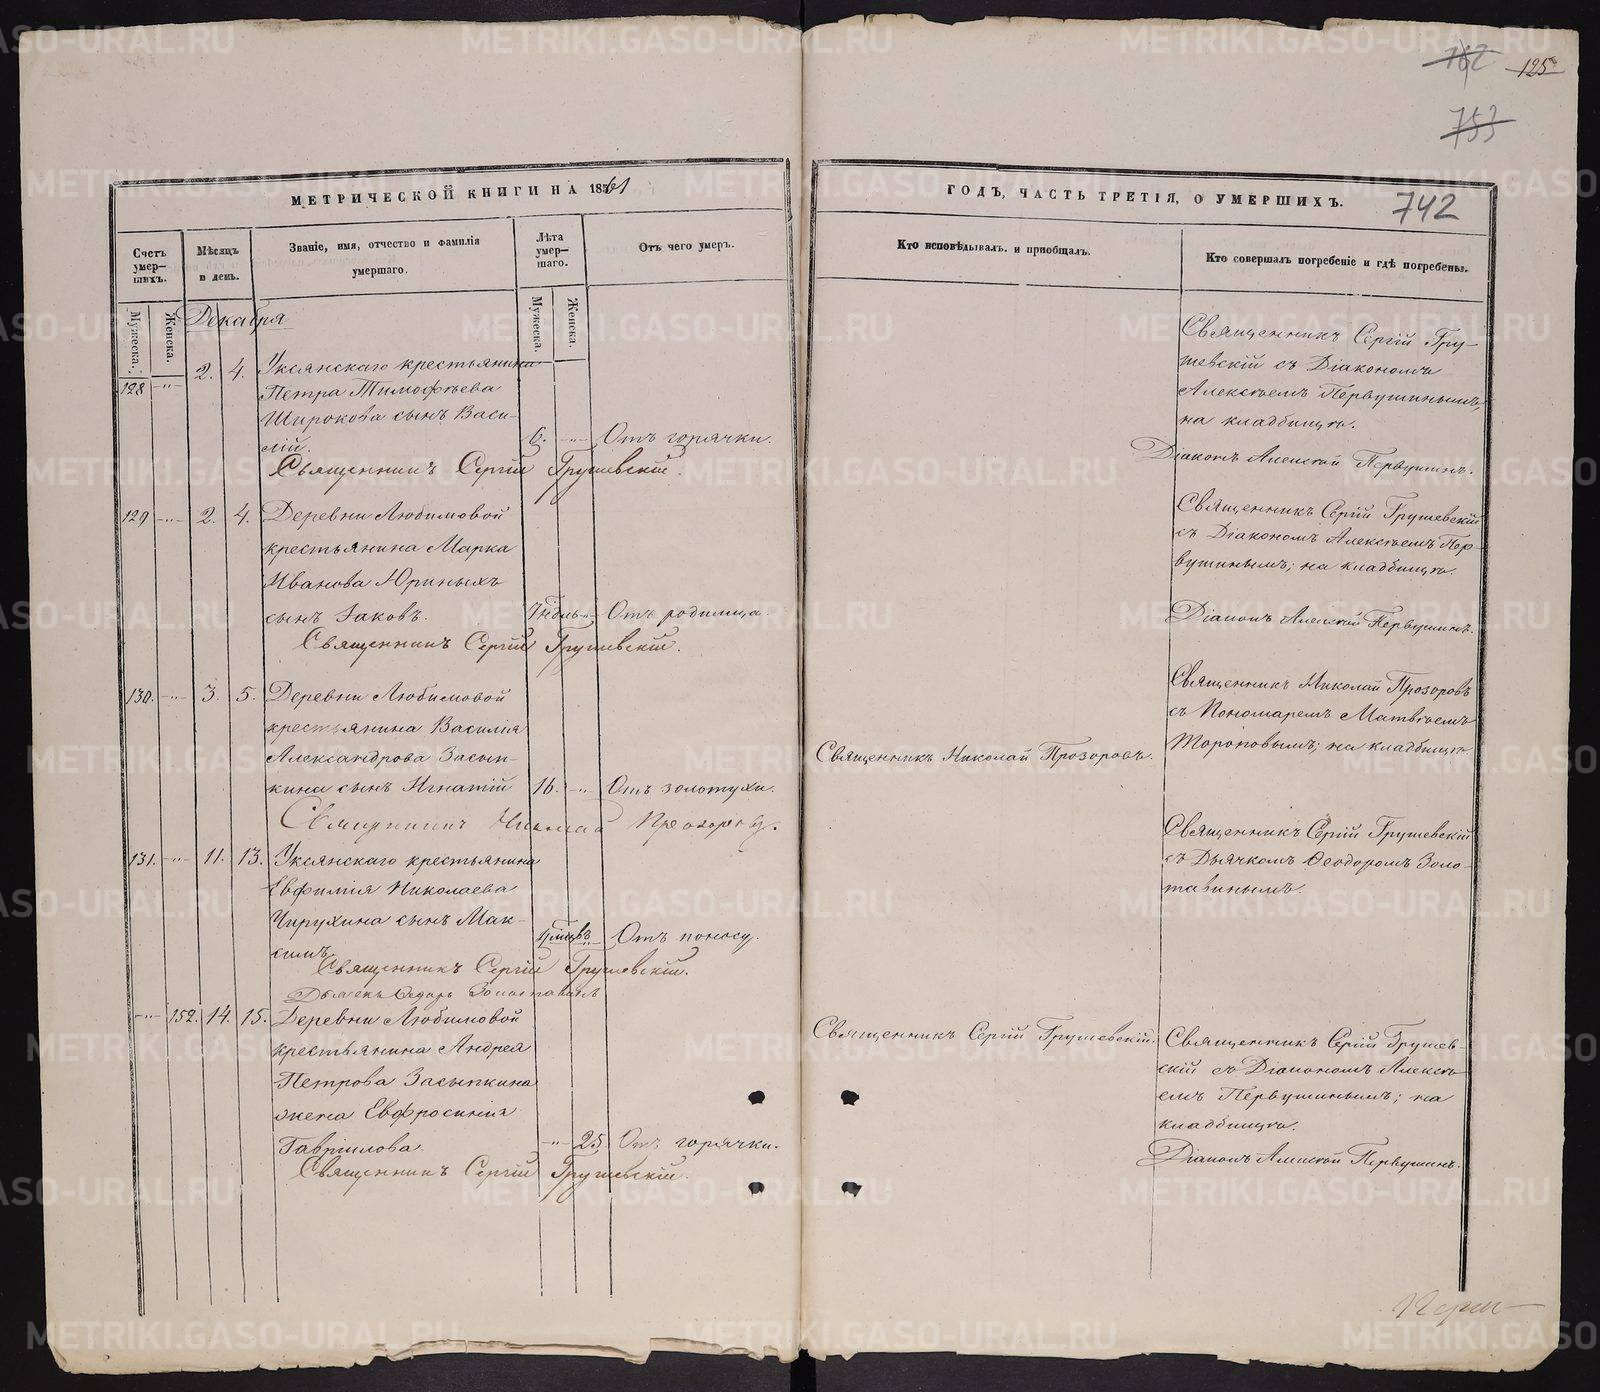 МЕТРИЧЕСКОЙ КНИГИ НА 1861
Счетъ умер-шихъ.
Мѣсяцъ и день.
Званіе, имя, отчество и фамилія умершаго.
Лѣта умер-шаго.
Отъ чего умеръ.
Мужеска.
Женска.
Мужеска.
Женска.
Декабря
128 -"- 2. 4. Уксянскаго крестьянина
Петра Тимофѣева
Широкова сынъ Васи-
лій. 6. -"- Отъ горячки.
Священникъ Сергій Грушевскій.
129 -"- 2. 4. Деревни Любимовой
крестьянина Марка
Иванова Юриныхъ
сынъ Іаковъ. 7 недѣль -"- Отъ родимца.
Священникъ Сергій Грушевскій.
130. -"- 3. 5. Деревни Любимовой
крестьянина Василія
Александрова Засып-
кина сынъ Игнатій 16. -"- Отъ золотухи.
Священникъ Николай Прозоровъ.
131. -"- 11. 13. Уксянскаго крестьянина
Евфимія Николаева
Чирухина сынъ Мак-
симъ -"- Отъ поносу.
Священникъ Сергій Грушевскій.
Дьячекъ Федоръ Золотавинъ
-"- 152. 14. 15. Деревни Любимовой
крестьянина Андрея
Петрова Засыпкина
жена Евфросинія
Гавриилова. -"- 25 Отъ горячки.
Священникъ Сергій Грушевскій.
762
125
753
742
ГОДЪ, ЧАСТЬ ТРЕТІЯ, О УМЕРШИХЪ.
Кто исповѣдывалъ и пріобщалъ.
Кто совершалъ погребеніе и гдѣ погребены.
Священникъ Сергій Гру-
шевскій съ Діакономъ
Алексѣемъ Первушинымъ,
на кладбищѣ.
Діаконъ Алексѣй Первушинъ.
Священникъ Сергій Грушевскій
съ Діакономъ Алексѣемъ Пер-
вушинымъ; на кладбищѣ.
Діаконъ Алексѣй Первушинъ.
Священникъ Николай Прозоровъ
съ Пономаремъ Матвѣемъ
Священникъ Николай Прозоровъ.
Тороповымъ; на кладбищѣ.
Священникъ Сергій Грушевскій
съ Дьячкомъ Ѳеодоромъ Золо-
тавинымъ.
Священникъ Сергій Грушевскій.
Священникъ Сергій Грушев-
скій съ Діакономъ Алексѣ-
емъ Первушинымъ; на
кладбищѣ.
Діаконъ Алексѣй Первушинъ.
METRIKI.GASO-URAL.RU